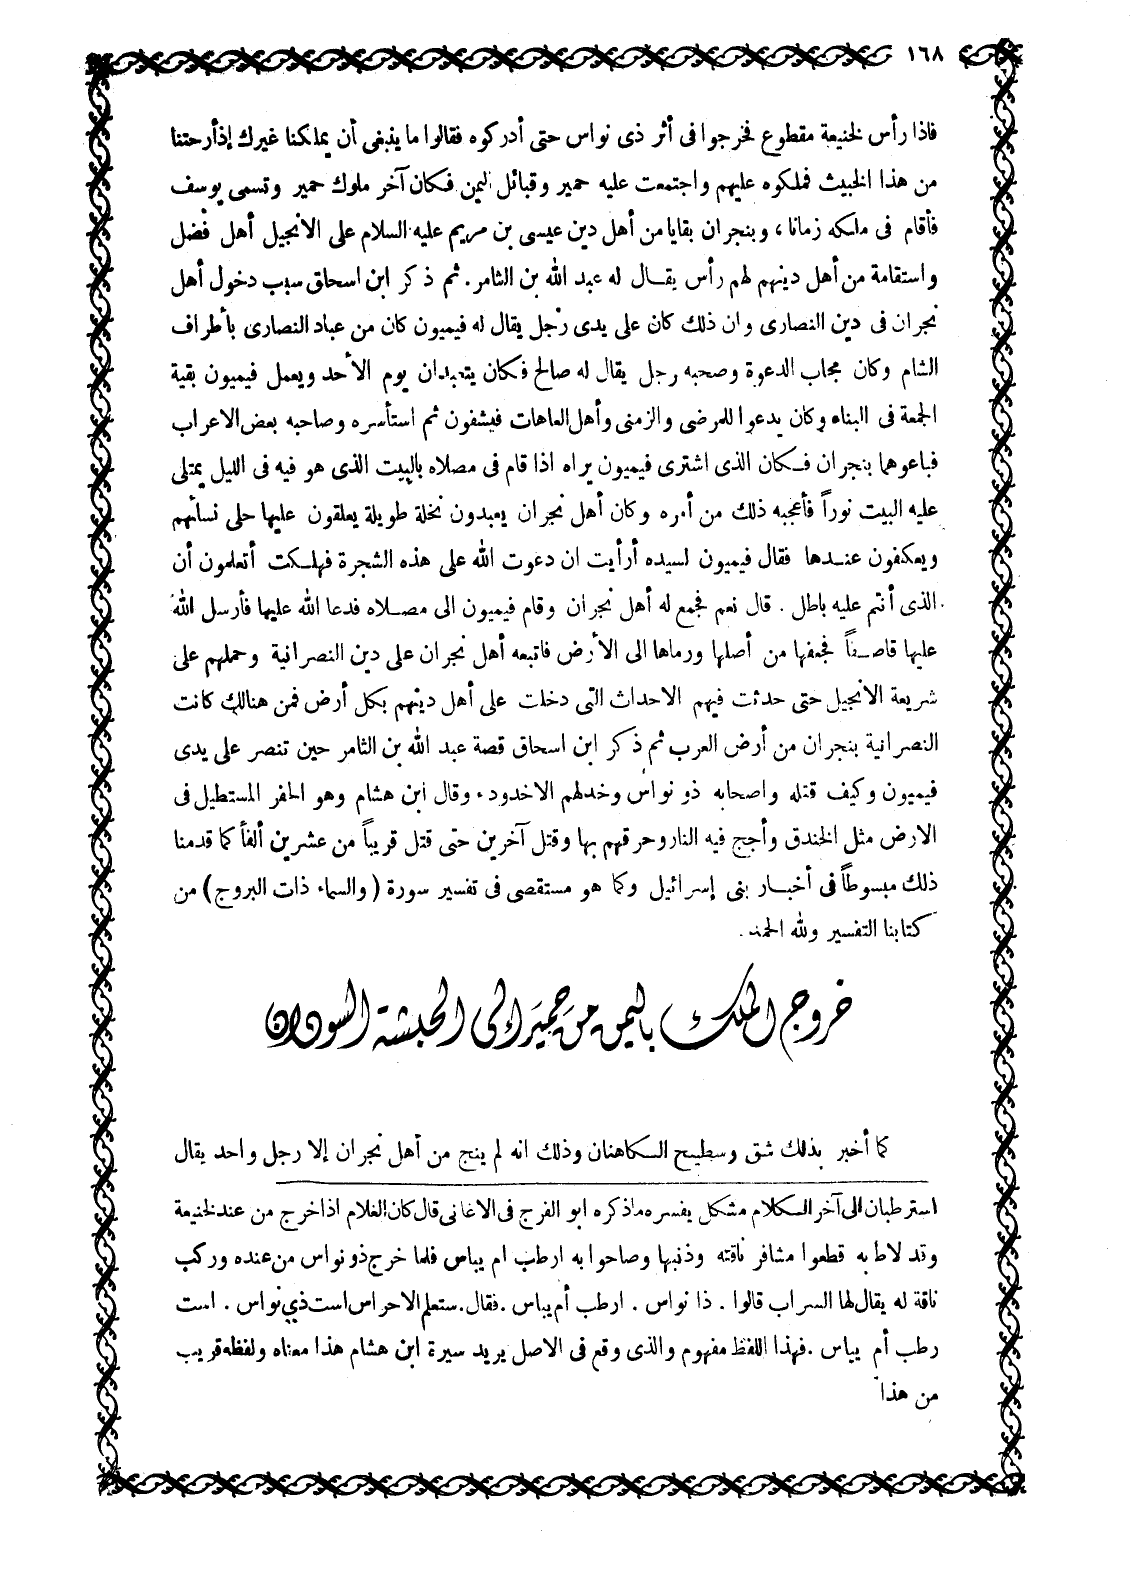 ١٦٨
فاذا رأس لخنيعة مقطوع فخرجوا فى أثر ذى نواس حتى أدركوه فقالوا ما ينبغى أن يملكنا غيرك إذ أرحتنا
من هذا الخبيث فملكوه عليهم واجتمعت عليه حمير وقبائل اليمن فكان آخر ملوك حمير وتسمى يوسف
فأقام فى ملكه زمانا ، وبنجران بقايا من أهل دين عيسى بن مريم عليه السلام على الانجيل أهل فضل
واستقامة من أهل دينهم لهم رأس يقال له عبد الله بن الثامر . ثم ذكر ابن اسحاق سبب دخول أهل
نجران فى دين النصارى وان ذلك كان على يدى رجل يقال له فيميون كان من عباد النصارى بأطراف
الشام وكان مجاب الدعوة وصحبه رجل يقال له صالح فكان يتعبدان يوم الأحد ويعمل فيميون بقية
الجمعة فى البناء وكان يدعوا للمرضى والزمنى وأهل العاهات فيشفون ثم استأسره وصاحبه بعض الاعراب
فباعوهما بنجران فكان الذى اشترى فيميون يراه اذا قام فى مصلاه بالبيت الذى هو فيه فى الليل يمتلى
عليه البيت نوراً فأعجبه ذلك من أمره وكان أهل نجران يعبدون نخلة طويلة يعلقون عليها حلى نسائهم
ويعكفون عندها فقال فيميون لسيده أرأيت ان دعوت الله على هذه الشجرة فهلكت أتعلمون أن
الذى أنتم عليه باطل . قال نعم فجمع له أهل نجران وقام فيميون الى مصلاه فدعا الله عليها فأرسل الله
عليها قاصفاً فجعفها من أصلها ورماها الى الأرض فاتبعه أهل نجران على دين النصرانية وحملهم على
شريعة الانجيل حتى حدثت فيهم الاحداث التى دخلت على أهل دينهم بكل أرض فمن هنالك كانت
النصرانية بنجران من أرض العرب ثم ذكر ابن اسحاق قصة عبد الله بن الثامر حين تنصر على يدى
فيميون وكيف قتله واصحابه ذو نواس وخدلهم الاخدود . وقال ابن هشام وهو الحفر المستطيل فى
الارض مثل الخندق وأجج فيه النار وحرقهم بها وقتل آخرين حتى قتل قريباً من عشرين ألفاً كما قدمنا
ذلك مبسوطاً فى أخبار بنى إسرائيل وكما هو مستقصى فى تفسير سورة ( والسماء ذات البروج ) من
كتابنا التفسير ولله الحمد .
خروج الملك باليمن من حمير إلى الحبشة السودان
كما أخبر بذلك شق وسطيح الكاهنان وذلك انه لم ينج من أهل نجران إلا رجل واحد يقال
استرطبان الى آخر الكلام مشكل يفسره ماذكره ابو الفرج فى الاغانى قال كان الغلام اذا خرج من عند لخنيعة
وقد لاط به قطعوا مشافر ناقته وذنبها وصاحوا به ارطب ام يباس فلما خرج ذو نواس من عنده وركب
ناقة له يقال لها السراب قالوا . ذا نواس . ارطب أم يباس . فقال . ستعلم الاحراس است ذي نواس . است
رطب أم يباس . فهذا اللفظ مفهوم والذى وقع فى الاصل يريد سيرة ابن هشام هذا معناه ولفظه قريب
من هذا